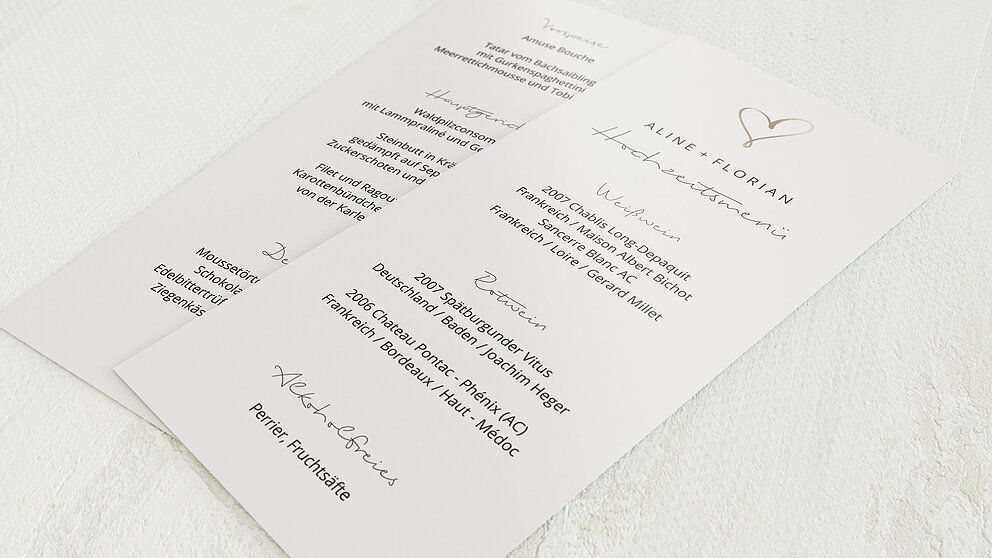 Vorspeise
Amuse Bouche
Tatar vom Bachsaibling
mit Gurkenspaghettini
Meerrettichmousse und Tobi
Hauptgeric
Waldpilzconsom
mit Lammpraliné und Ge
Steinbutt in Kr
gedämpft auf Sep
Zuckerschoten und
Filet und Ragou
Karottenbündche
von der Karle
De
Moussetört
Schokola
Edelbittertrüf
Ziegenkäs
ALINE + FLORIAN
Hochzeitsmenü
Weißwein
2007 Chablis Long-Depaquit
Frankreich / Maison Albert Bichot
Sancerre Blanc AC
Frankreich / Loire / Gerard Millet
Rotwein
2007 Spätburgunder Vitus
Deutschland / Baden / Joachim Heger
2006 Chateau Pontac - Phénix (AC)
Frankreich / Bordeaux / Haut - Médoc
Alkoholfreies
Perrier, Fruchtsäfte